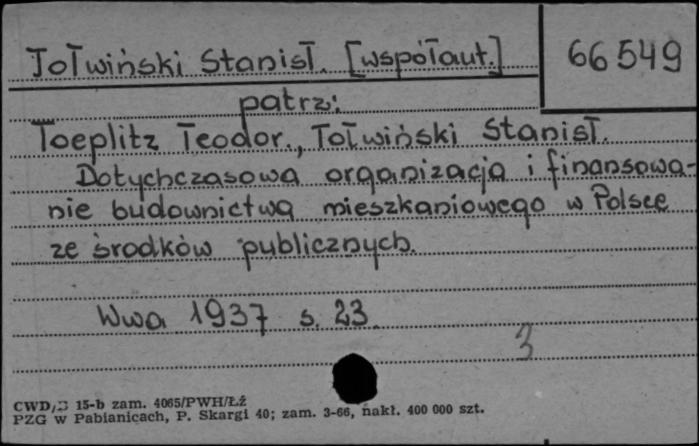 Tołwiński Stanisł. [współaut.]
66 549
patrz:
Toeplitz Teodor., Tołwiński Stanisł.
Dotychczasowa organizacja i finansowa-
nie budownictwa mieszkaniowego w Polsce
ze środków publicznych.
Wwa 1937 s. 23
3
CWD/B 15-b zam. 4065/PWH/Łź
PZG w Pabianicach, P. Skargi 40; zam. 3-66, nakł. 400 000 szt.